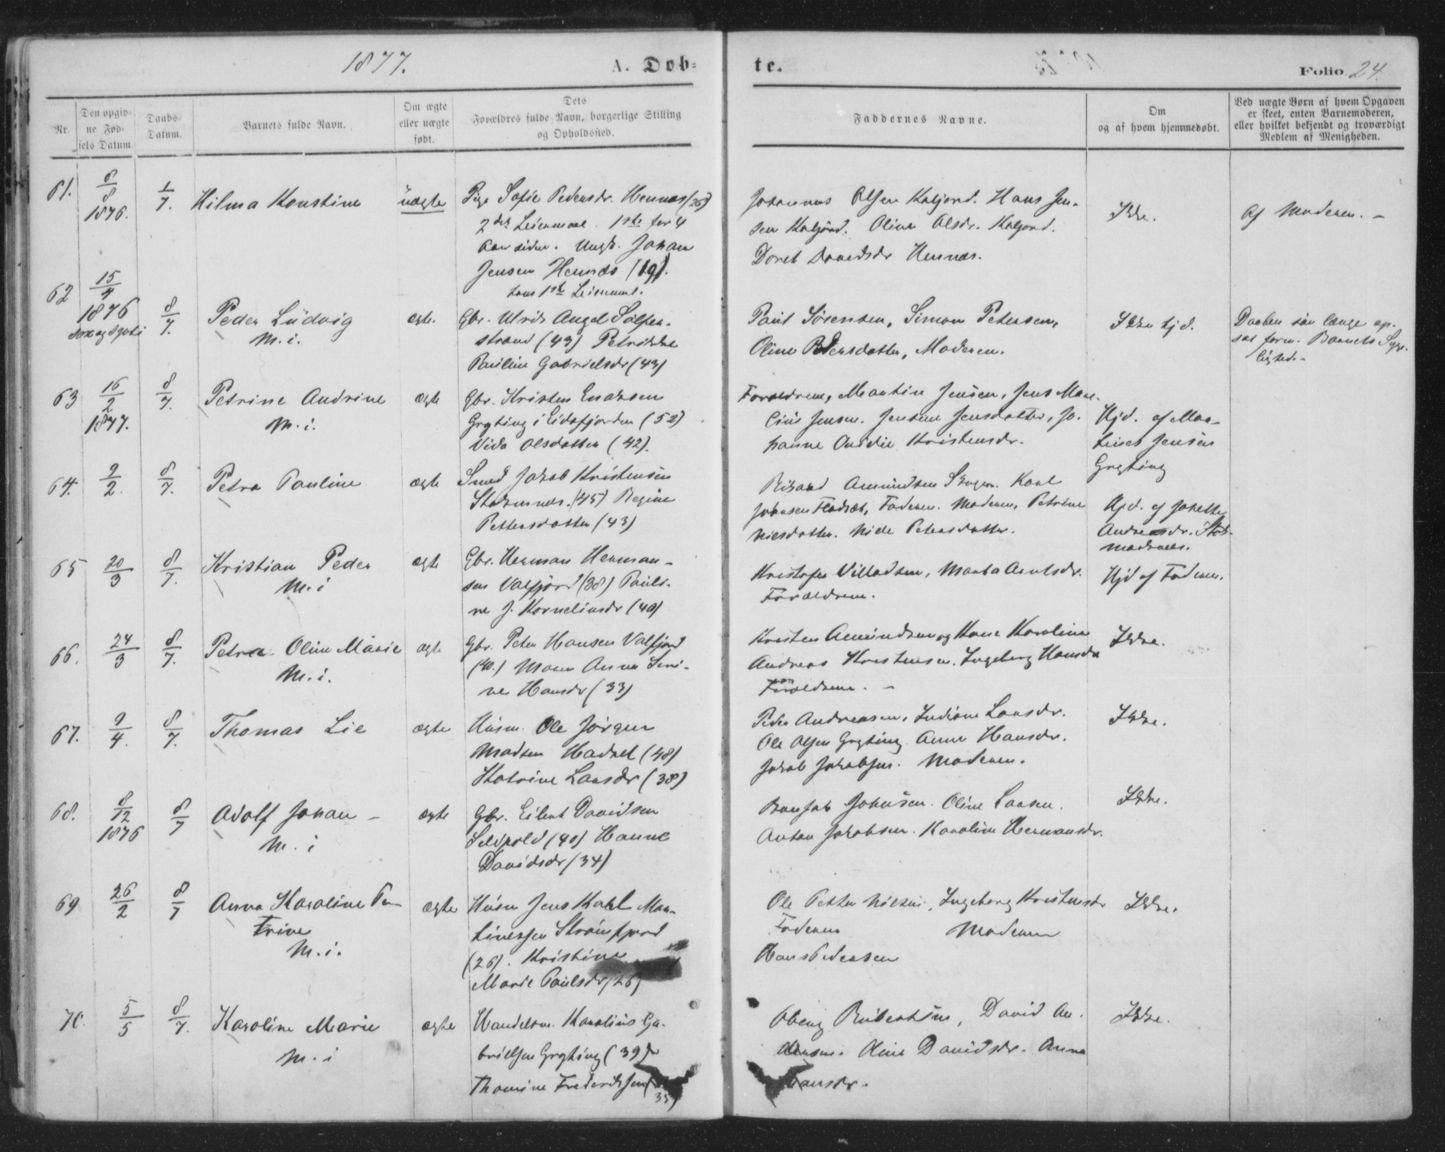 1877.
A. Døb-
te.
Folio 24.
Nr.
Den opgiv-
ne Fød-
sels Datum.
Daabs-
Datum.
Barnets fulde Navn.
Om ægte
eller uægte
født.
Dets
Forældres fulde Navn, borgerlige Stilling
og Opholdssted.
Faddernes Navne.
Om
og af hvem hjemmedøbt.
Ved uægte Børn af hvem Opgaven
er skeet, enten Barnemoderen,
eller hvilket bekjendt og troværdigt
Medlem af Menigheden.
61.
6/8
1876.
1/7.
Hilma Konstine
uægte
Pige Sofie Pedersdr. Hennæs (26)
2det Leiermaal. 1ste for 4
Aar siden. Ungk. Johan
Jensen Hennæs (19).
hans 1ste Leiermaal.
Johannes Olsen Kaljord. Hans Jen-
sen Kaljord. Oline Olsdr. Kaljord.
Doret Davidsdr Hennæs.
Ikke.
Af Moderen. -
62
15/9
1876
8/7.
Peder Ludvig
M. i.
ægte.
Gbr. Ulrik Angel
strand (43)
Pauline Gabrielsdr (43)
Paul Sørensen, Simon Petersen,
Oline Pedersdatter, Moderen.
Ikke hjd.
Daaben saa længe op-
sat form. Barnets Syge-
lighed.
63
16/2
1877.
8/7.
Petrine Andrine
M. i.
ægte
Gbr. Kristen
Grytting i Eidsfjorden (52)
Olsdatter (42).
Forældrene, Martin Jensen, Jens Mar-
Jensen. Jensine Jensdatter, Jo-
hanne Kristensdr.
Hjd. af Mar-
Jensen
Grytting
64.
9/2.
8/7.
Petra Pauline
ægte
Smed Jakob Kristensen
Stokmarnæs. (45) Regine
Pettersdatter (43)
Rikard Amundsen Skogen. Karl
Johnsen Faderen. Moderen, Petrine
Nilsdatter. Petersdatter.
Hjd. af
65
20/3
8/7.
Kristian Peder
M. i
ægte
Gbr. Herman Herman-
sen Valfjord (38) Pauli-
ne J. Korneliusdr (40)
Kristofer Villadsen, Marta Arntsdr.
Forældrene.
Hjd af Faderen.
66.
24/3
8/7.
Petra Oline Marie
M. i.
ægte
Gbr. Peter Hansen Valfjord
(40.) Maren Anna
ne Hansdr (33)
Kristen Amundsen og Kone Karoline
Andreas Kristensen. Ingeborg Hansdr
Forældrene. -
Ikke.
67.
9/4.
8/7.
Thomas Lie
ægte
Husm. Ole Jørgen
Madsen Hadsel (48)
Katrine Larsdr (38)
Peder Andreasen, Indiane Larsdr.
Ole Olsen Grytting. Anne Hansdr.
Jakob Jakobsen. Moderen.
Ikke.
68.
8/12
1876
8/7
Adolf Johan -
M. i
ægte
Gbr. Eilert Davidsen
(40) Hanne
Davidsdr (34)
Johnsen. Oline Larsen.
Anton Jakobsen. Karoline Hermansdr.
Ikke.
69
26/2
8/7
Anna Karoline Pe-
trine
M. i.
ægte
Husm Jens Karl Mar-
tinessen Strømfjord
(26). Kristine
Marie Paulsdr (26)
Ole Petter Nilsen, Ingeborg Kristensdr
Faderen Moderen
Hans Pedersen
Ikke.
70.
5/5
8/7.
Karoline Marie
M. i
ægte
Handelsm. Karolius Ga-
brielsen Grytting (39)
Thomine Frederiksen
35)
David An-
Oline Davidsdr. Anna
Ikke.